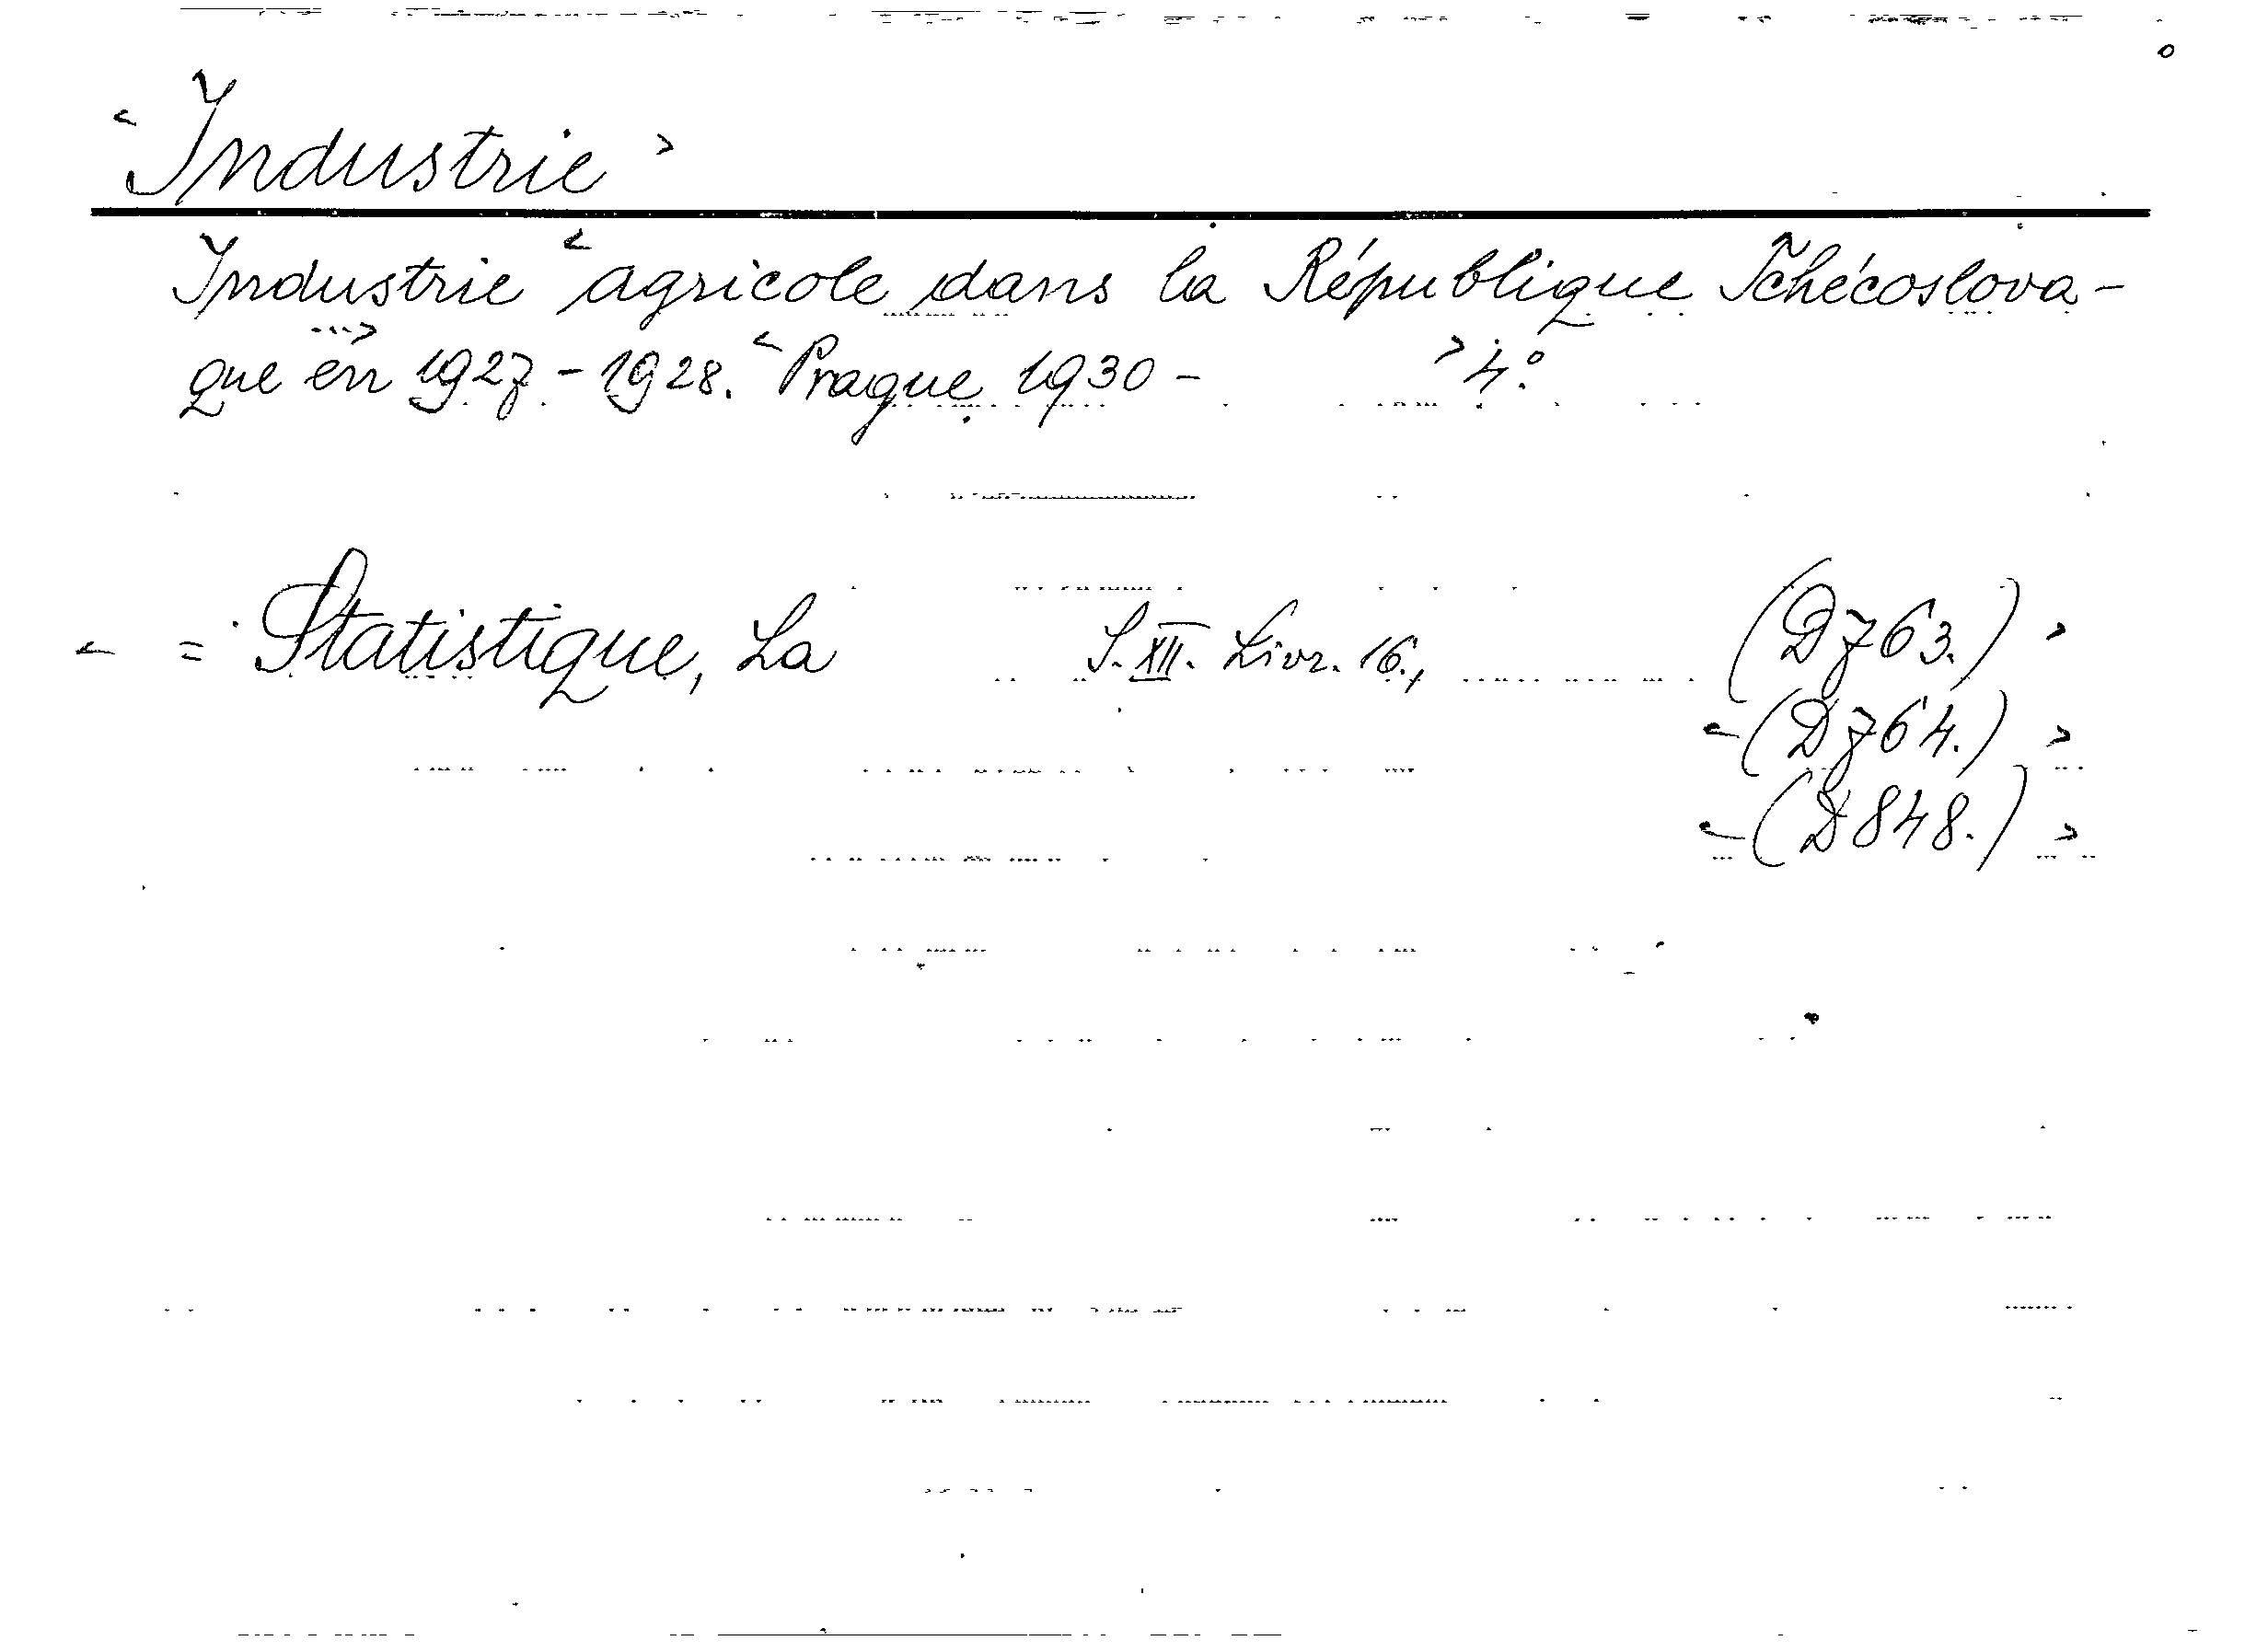 < Industrie >
Industrie < agricole dans la République Tchécoslova-
que en > 1927-1928. < Prague 1930- > 4°.
< = Statistique, La S. XII. Livr. 16., (D763.) >
< (D764.) >
< (D848.) >